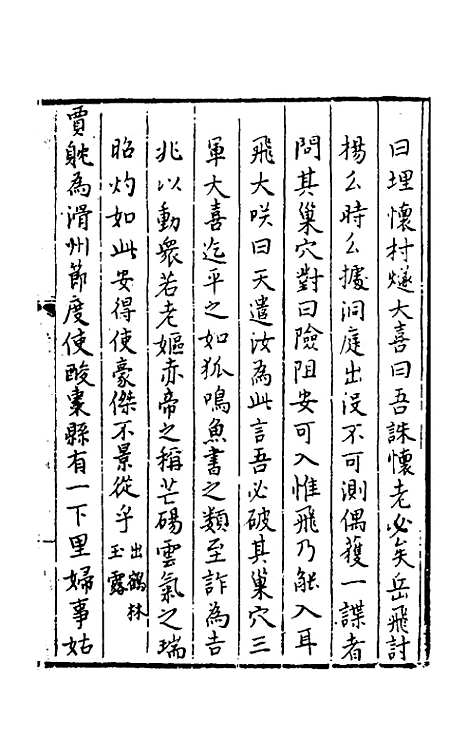 曰埋懷村燧大喜曰吾誅懷老必矣岳飛討
楊么時么據洞庭出没不可測偶獲一諜者
問其巢穴對曰險阻安可入惟飛乃能入耳
飛大咲曰天遣汝為此言吾必破其巢穴三
軍大喜迄平之如狐鳴魚書之類至詐為吉
兆以動衆若老嫗赤帝之稱芒碭雲氣之瑞
昭灼如此安得使豪傑不景從乎出鶴林玉露
賈躭為滑州節度使酸棗縣有一下里婦事姑